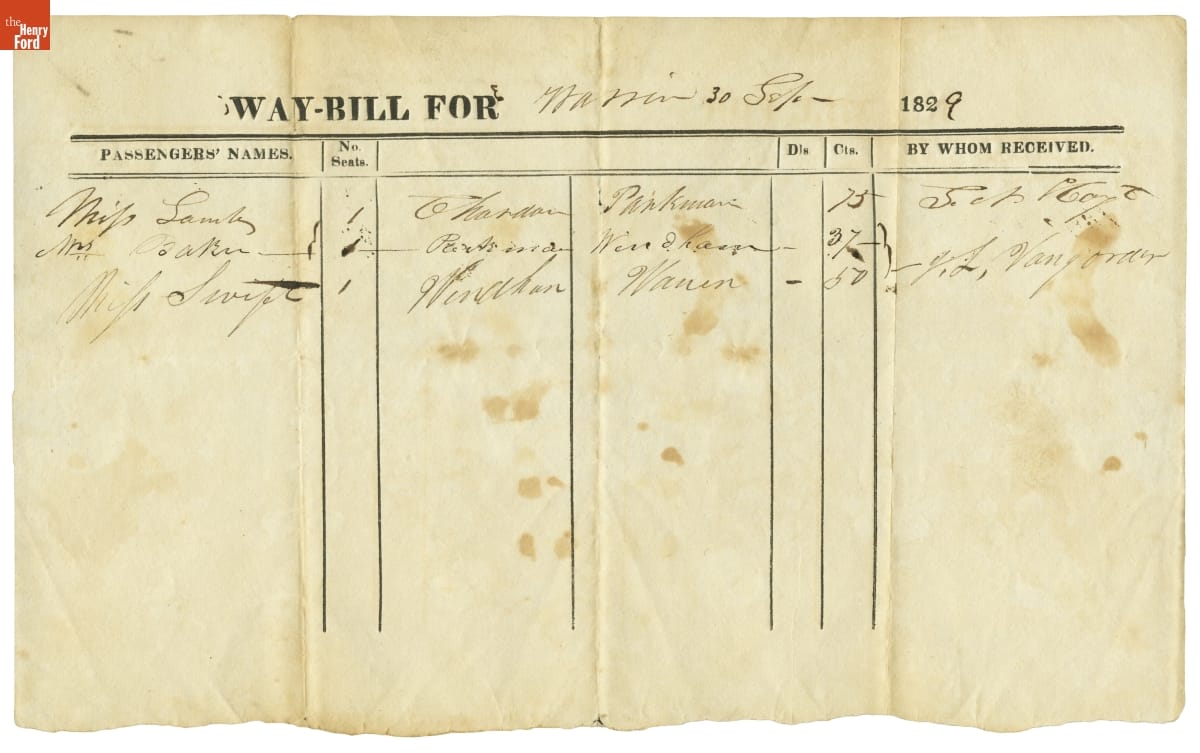 the Henry Ford
WAY-BILL FOR Warrin 30 Sep 1829
PASSENGERS' NAMES. No. Seats. Dls Cts. BY WHOM RECEIVED.
Miss Lamb 1 Chardon Parkman 75
Mrs Baker 1 Windham 37
Miss Swift 1 Windham Warren 50 Vangorder